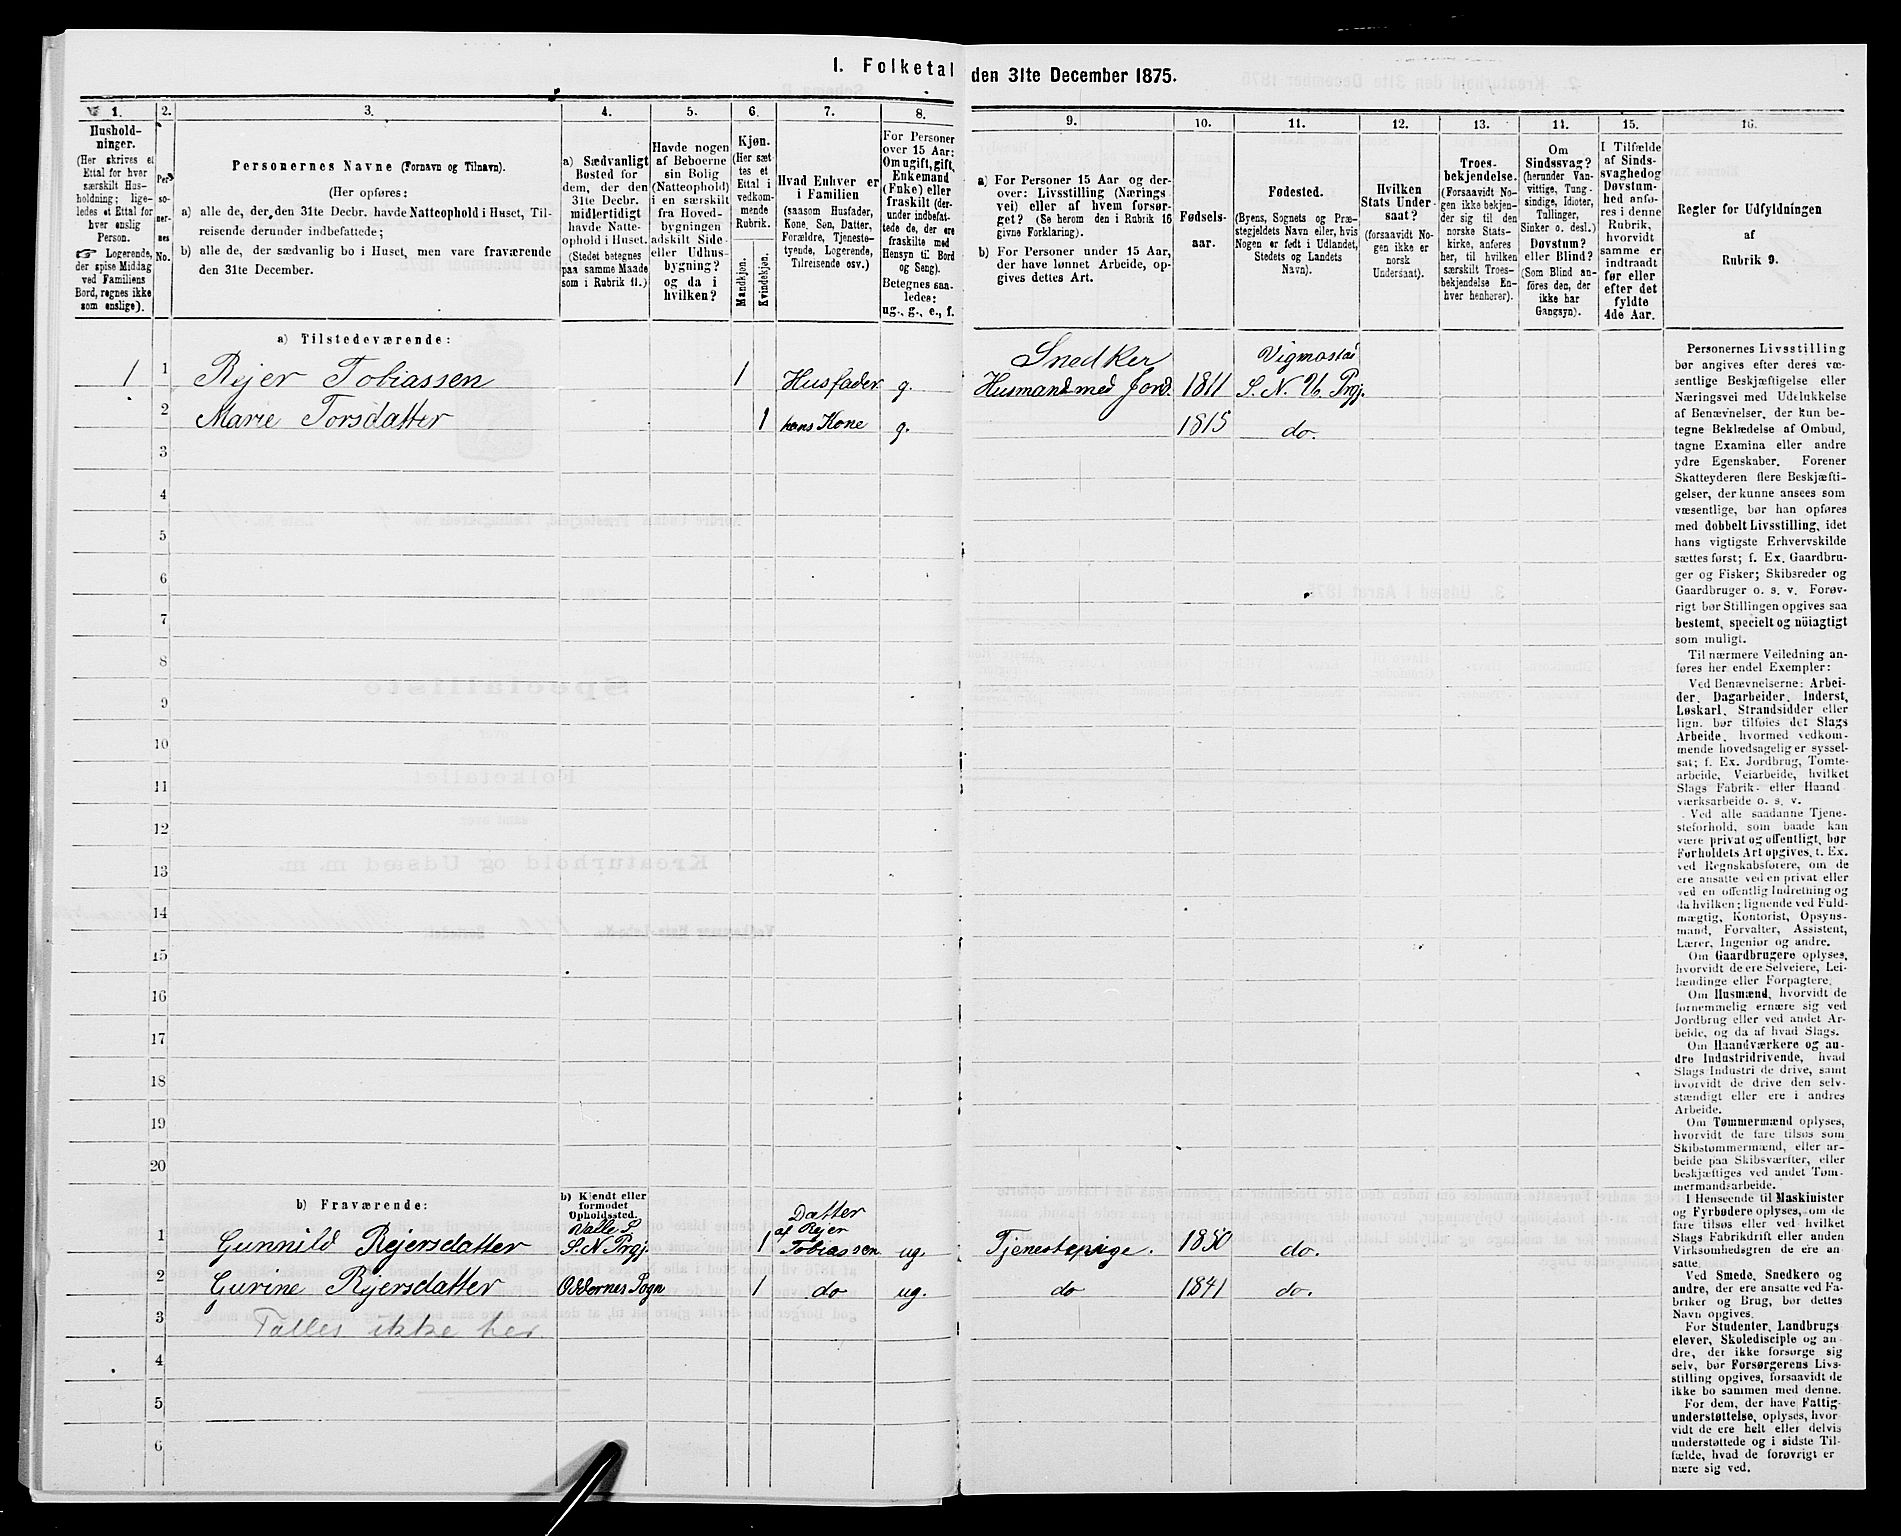 I. Folketal den 31te December 1875.
1.
Hushold-
ninger.
(Her skrives et
Ettal for hver
særskilt Hus-
holdning; lige-
ledes et Ettal for
hver enslig
Person.
☞ Logerende,
der spise Middag
ved Familiens
Bord, regnes ikke
som enslige).
2.
Per-
so-
ner-
nes
No.
3.
Personernes Navne (Fornavn og Tilnavn).
(Her opføres:
a) alle de, der den 31te Decbr. havde Natteophold i Huset, Til-
reisende derunder indbefattede;
b) alle de, der sædvanlig bo i Huset, men vare fraværende
den 31te December.
4.
a) Sædvanligt
Bosted for
dem, der den
31te Decbr.
midlertidigt
havde Natte-
ophold i Huset.
(Stedet betegnes
paa samme Maade
som i Rubrik 11.)
5.
Havde nogen
af Beboerne
sin Bolig
(Natteophold)
i en særskilt
fra Hoved-
bygningen
adskilt Side-
eller Udhus-
bygning?
og da i
hvilken?
6.
Kjøn.
(Her sæt-
tes et
Ettal i
vedkom-
mende
Rubrik.
Mandkjøn.
Kvindekjøn.
7.
Hvad Enhver er
i Familien
(saasom Husfader,
Kone, Søn, Datter,
Forældre, Tjeneste-
tyende, Logerende,
Tilreisende osv.)
8.
For Personer
over 15 Aar:
Om ugift, gift,
Enkemand
(Enke) eller
fraskilt (der-
under indbefat-
tede de, der ere
fraskilte med
Hensyn til Bord
og Seng).
Betegnes saa-
ledes:
ug., g., e., f.
9.
a) For Personer 15 Aar og der-
over: Livsstilling (Nærings-
vei) eller af hvem forsør-
get? (Se herom den i Rubrik 16
givne Forklaring).
b) For Personer under 15 Aar,
der have lønnet Arbeide, op-
gives dettes Art.
10.
Fødsels-
aar.
11.
Fødested.
(Byens, Sognets og Præ-
stegjeldets Navn eller, hvis
Nogen er født i Udlandet,
Stedets og Landets
Navn).
12.
Hvilken
Stats Under-
saat?
(forsaavidt No-
gen ikke er
norsk
Undersaat).
13.
Troes-
bekjendelse.
(Forsaavidt No-
gen ikke bekjen-
der sig til den
norske Stats-
kirke, anføres
her, til hvilken
særskilt Troes-
bekjendelse En-
hver henhører).
14.
Om
Sindssvag?
(herunder Van-
vittige, Tung-
sindige, Idioter,
Tallinger,
Sinker o. desl.)
Døvstum?
eller Blind?
(Som Blind an-
føres den, der
ikke har
Gangsyn).
15.
I Tilfælde
af Sinds-
svaghed og
Døvstum-
hed anfø-
res i denne
Rubrik,
hvorvidt
samme er
indtraadt
før eller
efter det
fyldte
4de Aar.
16.
Regler for Udfyldningen
af
Rubrik 9.
a) Tilstedeværende:
1 1 Rejer Tobiassen 1 Husfader g. Snedker Husmand med Jord. 1811 Vigmostad S. N. U. Prgj.
2 Marie Torsdatter 1 hans Kone g. 1815 do.
3
4
5
6
7
8
9
10
11
12
13
14
15
16
17
18
19
20
b) Fraværende:
b) Kjendt eller
formodet
Opholdssted.
1 Gunnild Rejersdatter Valle S. S. N Prgj. 1 Datter af Rejer Tobiassen ug. Tjenestepige. 1850 do.
2 Gurine Rejersdatter Oddernes Sogn 1 do ug. do 1841 do.
3 Tælles ikke her
4
5
6
Personernes Livsstilling
bør angives efter deres væ-
sentlige Beskjæftigelse eller
Næringsvei med Udelukkelse
af Benævnelser, der kun be-
tegne Beklædelse af Ombud,
tagne Examina eller andre
ydre Egenskaber. Forener
Skatteyderen flere Beskjæfti-
gelser, der kunne ansees som
væsentlige, bør han opføres
med dobbelt Livsstilling, idet
hans vigtigste Erhvervskilde
sættes først; f. Ex. Gaardbru-
ger og Fisker; Skibsreder og
Gaardbruger o. s. v. Forøv-
rigt bør Stillingen opgives saa
bestemt, specielt og nöiagtigt
som muligt.
Til nærmere Veiledning an-
føres her endel Exempler:
Ved Benævnelserne: Arbei-
der, Dagarbeider, Inderst,
Løskarl, Strandsidder eller
lign. bør tilføies det Slags
Arbeide, hvormed vedkom-
mende hovedsagelig er syssel-
sat; f. Ex. Jordbrug, Tomte-
arbeide, Veiarbeide, hvilket
Slags Fabrik- eller Haand-
værksarbeide o. s. v.
Ved alle saadanne Tjene-
steforhold, som baade kan
være privat og offentligt, bør
Forholdets Art opgives, f. Ex.
ved Regnskabsførere, om de
ere ansatte ved en privat eller
ved en offentlig Indretning og
da hvilken; lignende ved Fuld-
mægtig, Kontorist, Opsyns-
mand, Forvalter, Assistent,
Lærer, Ingeniør og andre.
Om Gaardbrugere oplyses,
hvorvidt de ere Selveiere, Lei-
lændinge eller Forpagtere.
Om Husmænd, hvorvidt de
fornemmelig ernære sig ved
Jordbrug eller ved andet Ar-
beide, og da af hvad Slags.
Om Haandværkere og an-
dre Industridrivende, hvad
Slags Industri de drive, samt
hvorvidt de drive den selv-
stændigt eller ere i andres
Arbeide.
Om Tømmermænd oplyses,
hvorvidt de fare tilsøs som
Skibstømmermænd, eller ar-
beide paa Skibsværfter, eller
beskjæftiges ved andet Tøm-
mermandsarbeide.
I Henseende til Maskinister
og Fyrbødere oplyses, om de
fare tilsøs eller ved hvilket
Slags Fabrikdrift eller anden
Virksomhedsgren de ere an-
satte.
Ved Smede, Snedkere og
andre, der ere ansatte ved Fa-
briker og Brug, bør dettes
Navn opgives.
For Studenter, Landbrugs-
elever, Skoledisciple og an-
dre, der ikke forsørge sig
selv, bør Forsørgerens Livs-
stilling opgives, forsaavidt de
ikke bo sammen med denne.
For dem, der have Fattig-
understøttelse, oplyses, hvor-
vidt de ere helt eller delvis
understøttede og i sidste Til-
fælde, hvad de forøvrigt er-
nære sig ved.